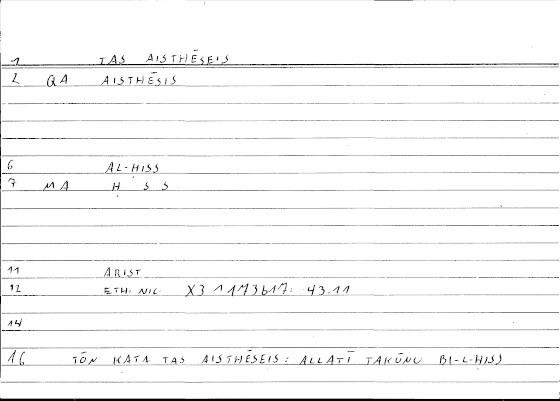 1 TAS AISTHĒSEIS
2 QA AISTHĒSIS
6 AL-HISS
7 MA Ḥ S S
11 ARIST
12 ETH. NIC. X3 1173b17: 43.11
14
16 TŌN KATA TAS AISTHĒSEIS: ALLATĪ TAKŪNU BI-L-HISS